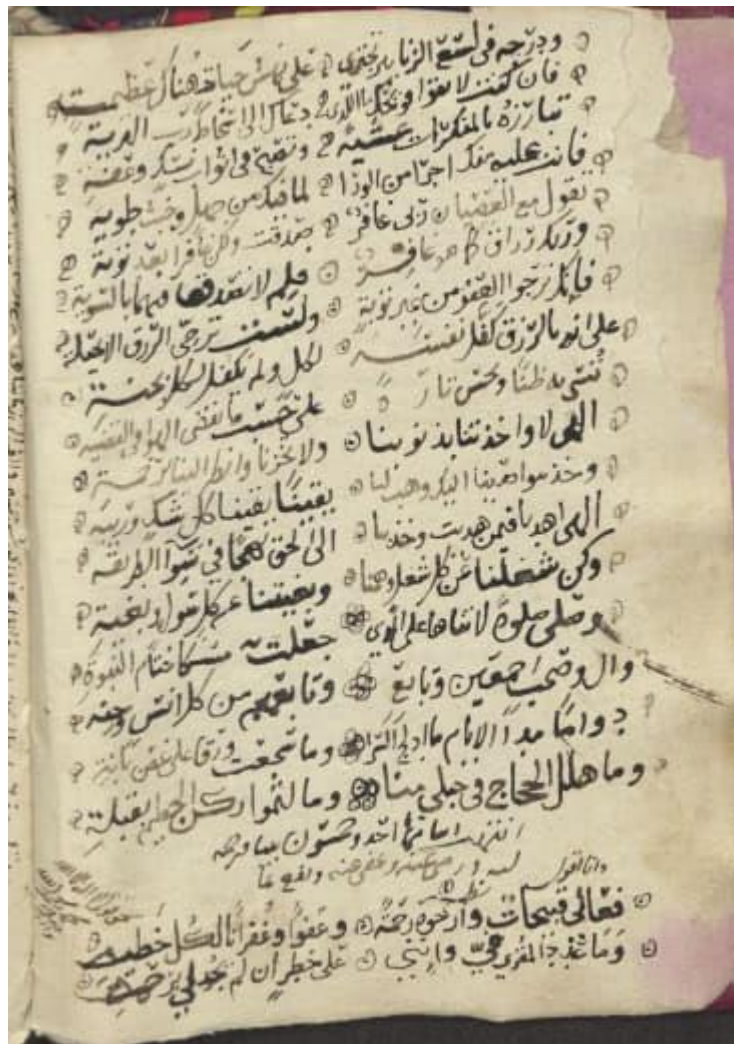 ودرجه في لسع الزنابير تجتري على نهش حيات هناك عظيمة
فان كنت لا تقوا فويحك ما الذي دعاك الى اسخاط رب البرية
تبارزه بالمنكرات عشية وتصبح في اثواب نسك وعفة
فانت عليه منك اجرا من الورا لما فيك من جهل وخبث طوية
تقول مع العصيان ربي غافر صدقت ولكن غافر بعد توبة
وربك رزاق كما هو غافر فلم لا تصدق فيهما بالسوية
فانك ترجوا العفو من غير توبة ولست ترجي الرزق الا بحيلة
على انه بالرزق كفل نفسه لكل ولم يكفل لكل بجنة
تسئ به ظنا وتحسن تارة على حسب ما يقضى الهوا في القضية
الهي لا واخذتنا بذنوبنا ولا تخزنا وانظر الينا برحمة
وخذ بنواصينا اليك وهب لنا يقينا يقينا كل شك وريبة
الهي اهدنا فيمن هديت وخذ بنا الى الحق نهجا في سواء الطريقة
وكن شغلنا عن كل شغل وهمنا وبغيتنا عن كل سول وبغية
وصلى صلوة لا تناها على الذي جعلت به مسكا ختام النبوة
وال وصحب اجمعين وتابع وتابعهم من كل انس وجنة
دواما مدا الايام ما وما سجعت ورقا على غصن
وما هلل الحجاج في جبلى منا وما لثموا ركن الحطيم بقبلة
انتهت ابياتها احد وخمسون بيتا
وانا اقول
فعالى قبيحات وارجوه رحمة وعفوا وغفرانا لكل خطيت
وما على خطر ان لم يجد لي برحمة